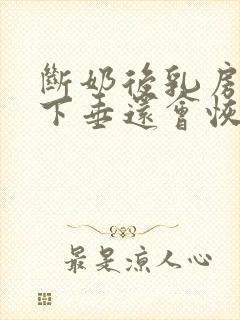 斷奶後乳房
下垂還會恢
最是涼人心